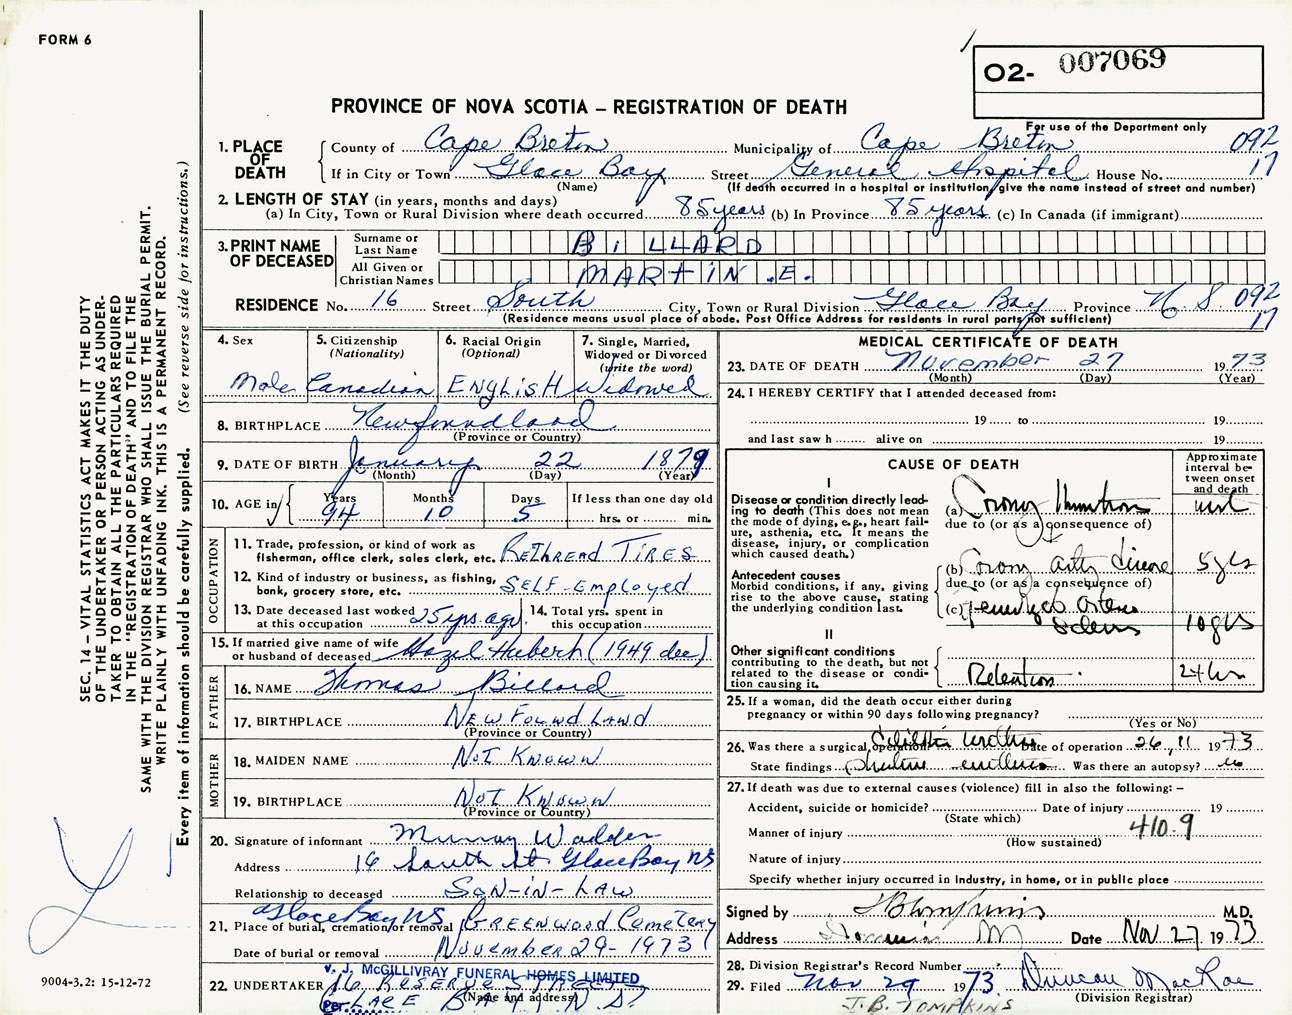 FORM 6
O2- 007069
PROVINCE OF NOVA SCOTIA – REGISTRATION OF DEATH
For use of the Department only
1. PLACE OF DEATH
County of Cape Breton Municipality of Cape Breton 092
If in City or Town Glace Bay Street General Hospital House No. 17
(Name) (If death occurred in a hospital or institution, give the name instead of street and number)
2. LENGTH OF STAY (in years, months and days)
(a) In City, Town or Rural Division where death occurred 85 years (b) In Province 85 years (c) In Canada (if immigrant)
3. PRINT NAME OF DECEASED
Surname or Last Name BiLLARD
All Given or Christian Names MARTIN .E.
RESIDENCE No. 16 Street South City, Town or Rural Division Glace Bay Province N.S. 092
17
(Residence means usual place of abode. Post Office Address for residents in rural parts not sufficient)
4. Sex Male
5. Citizenship (Nationality) Canadian
6. Racial Origin (Optional) ENGLISH
7. Single, Married, Widowed or Divorced (write the word) Widowed
8. BIRTHPLACE Newfoundland
(Province or Country)
9. DATE OF BIRTH January 22 1879
(Month) (Day) (Year)
10. AGE in Years 94 Months 10 Days 5 If less than one day old
hrs. or min.
OCCUPATION
11. Trade, profession, or kind of work as fisherman, office clerk, sales clerk, etc. RETHREAD TIRES
12. Kind of industry or business, as fishing, bank, grocery store, etc. SELF-Employed
13. Date deceased last worked at this occupation 25 yrs. ago
14. Total yrs. spent in this occupation
15. If married give name of wife or husband of deceased Hazel Hubert (1949 dec)
FATHER
16. NAME Thomas Billard
17. BIRTHPLACE NEW Found Land
(Province or Country)
MOTHER
18. MAIDEN NAME NOT KNOWN
19. BIRTHPLACE NOT KNOWN
(Province or Country)
20. Signature of informant Murray Wadden
Address 16 South St Glace Bay NS
Relationship to deceased SON-IN-LAW
Glace Bay NS
21. Place of burial, cremation or removal GREENWOOD CEMETERY
Date of burial or removal November 29-1973
V. J. McGILLIVRAY FUNERAL HOMES LIMITED
22. UNDERTAKER 16 RESERVE STREET
(Name and address)
Per GLACE BAY N.S.
MEDICAL CERTIFICATE OF DEATH
23. DATE OF DEATH November 27 1973
(Month) (Day) (Year)
24. I HEREBY CERTIFY that I attended deceased from:
19 to 19
and last saw h alive on 19
CAUSE OF DEATH
Approximate interval between onset and death
I
Disease or condition directly leading to death (This does not mean the mode of dying, e.g., heart failure, asthenia, etc. It means the disease, injury, or complication which caused death.)
(a)
due to (or as a consequence of)
Antecedent causes
Morbid conditions, if any, giving rise to the above cause, stating the underlying condition last.
(b) 5 yrs
due to (or as a consequence of)
(c) 10 yrs
II
Other significant conditions contributing to the death, but not related to the disease or condition causing it.
Retention 24 hr
25. If a woman, did the death occur either during pregnancy or within 90 days following pregnancy?
(Yes or No)
26. Was there a surgical operation Date of operation 26, 11 1973
State findings Was there an autopsy? no
27. If death was due to external causes (violence) fill in also the following: –
Accident, suicide or homicide? Date of injury 19
(State which)
Manner of injury 410.9
(How sustained)
Nature of injury
Specify whether injury occurred in industry, in home, or in public place
Signed by JB Tompkins M.D.
Address Dominion Date Nov 27 1973
28. Division Registrar's Record Number
29. Filed Nov 29 1973 Duncan MacRae
(Division Registrar)
J.B. TOMPKINS
SEC. 14 – VITAL STATISTICS ACT MAKES IT THE DUTY
OF THE UNDERTAKER OR PERSON ACTING AS UNDER-
TAKER TO OBTAIN ALL THE PARTICULARS REQUIRED
IN THE "REGISTRATION OF DEATH" AND TO FILE THE
SAME WITH THE DIVISION REGISTRAR WHO SHALL ISSUE THE BURIAL PERMIT.
WRITE PLAINLY WITH UNFADING INK. THIS IS A PERMANENT RECORD.
Every item of information should be carefully supplied. (See reverse side for instructions.)
9004-3.2: 15-12-72